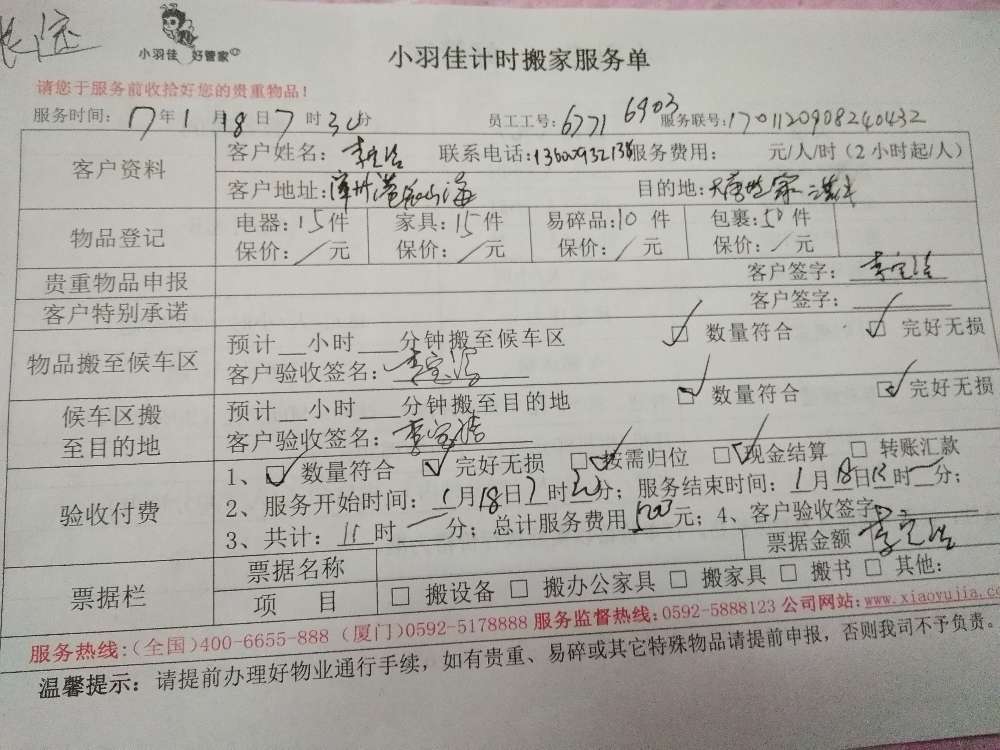 长途
小羽佳 好管家
小羽佳计时搬家服务单
请您于服务前收拾好您的贵重物品!
服务时间: 17年1月18日7时30分 员工工号: 6771 6903 服务联号: 1701120908240432
客户资料
客户姓名: 联系电话: 服务费用: 元/人/时(2小时起/人)
客户地址: 漳州港 山海 目的地:
物品登记
电器: 15件 家具: 15件 易碎品: 10件 包裹: 50件
保价: / 元 保价: / 元 保价: / 元 保价: / 元
贵重物品申报 客户签字:
客户特别承诺 客户签字:
物品搬至候车区
预计__小时___分钟搬至候车区 ☑ 数量符合 ☑ 完好无损
客户验收签名:
候车区搬至目的地
预计__小时___分钟搬至目的地 ☑ 数量符合 ☑ 完好无损
客户验收签名:
验收付费
1、☑ 数量符合 ☑ 完好无损 ☑ 按需归位 ☑ 现金结算 □ 转账汇款
2、服务开始时间: 1月18日7时30分; 服务结束时间: 1月18日 时一分;
3、共计: 11时一分; 总计服务费用 500元; 4、客户验收签字:
票据栏
票据名称 票据金额
项 目 □ 搬设备 □ 搬办公家具 □ 搬家具 □ 搬书 □ 其他:
服务热线:(全国)400-6655-888 (厦门)0592-5178888 服务监督热线:0592-5888123 公司网站:www.xiaoyujia.co
温馨提示: 请提前办理好物业通行手续, 如有贵重、易碎或其它特殊物品请提前申报, 否则我司不予负责。